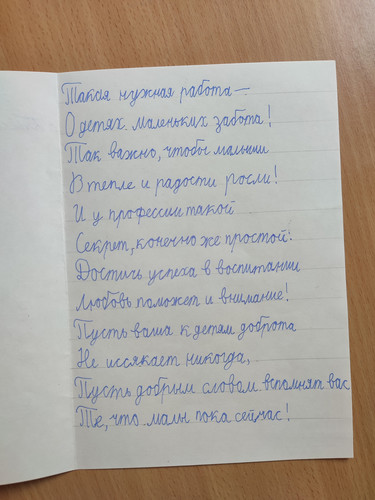 Такая нужная работа—
О детях маленьких забота!
Так важно, чтобы малыши
В тепле и радости росли!
И у профессии такой
Секрет, конечно же простой:
Достичь успеха в воспитании
Любовь поможет и внимание!
Пусть ваша к детям доброта
Не иссякает никогда,
Пусть добрым словом вспомнят вас
Те, что малы пока сейчас!